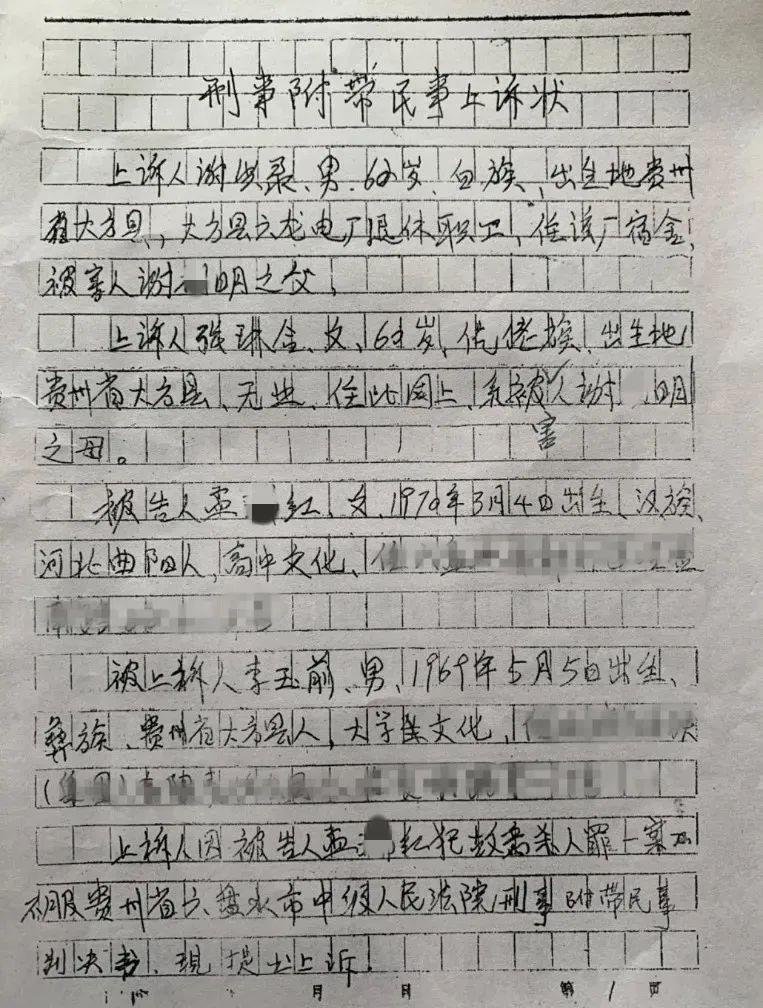 刑事附带民事上诉状
上诉人谢洪录、男、62岁、白族、出生地贵州
省大方县,、大方县六龙电厂退休职工、住该厂宿舍、
被害人谢 明之父,
上诉人张琳仙、女、63岁、仡佬族、出生地
贵州省大方县、无业、住址同上、系被害人谢 明
之母。
被告人孟 红、女、1970年3月4日出生、汉族、
河北曲阳人,高中文化、住
被上诉人李玉前、男、1969年5月5日出生、
彝族、贵州省大方县人,大学生文化,
(集团)
上诉人因被告人孟 红犯故意杀人罪一案不
服贵州省六盘水市中级人民法院刑事附带民事
判决书、现提出上诉!
月 日 第1页